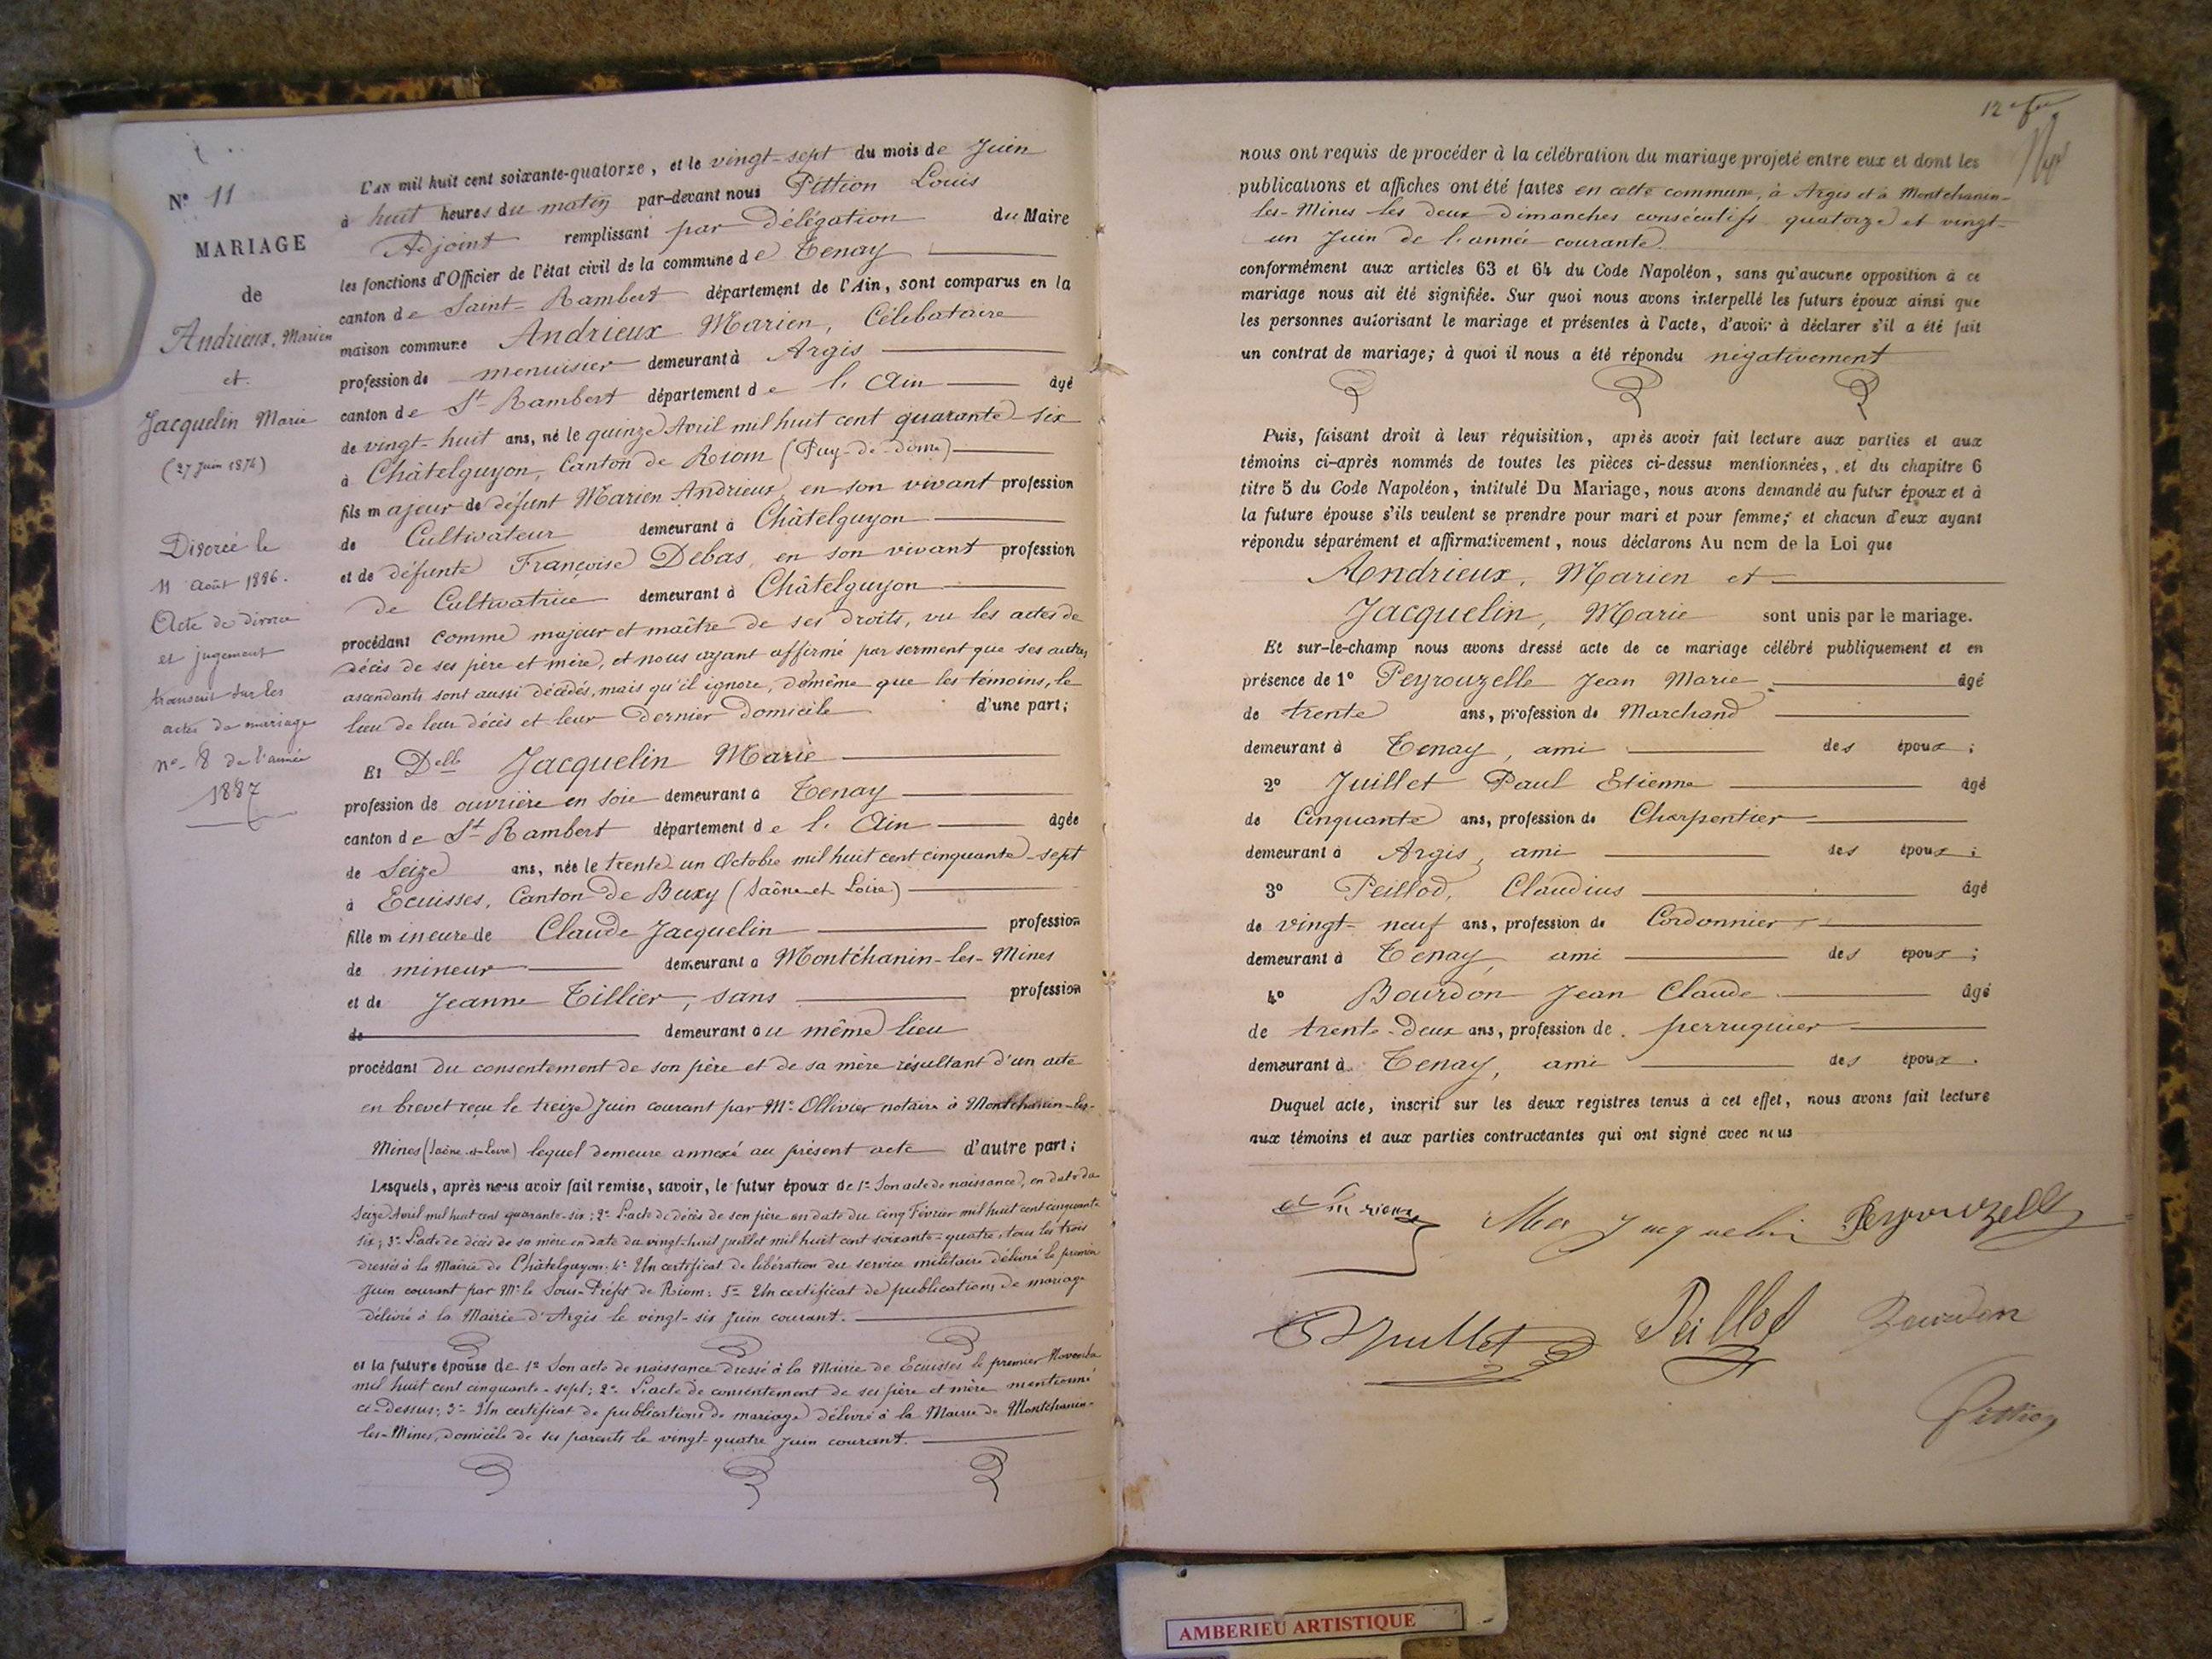 N° 11
MARIAGE
de
Andrieux, Marien
et
Jacquelin Marie
(27 Juin 1874)
Divorcé le
11 Août 1886.
Acte de divorce
et jugement
transcrit sur les
actes de mariage
n° 8 de l'année
1887
L'AN mil huit cent soixante-quatorze, et le vingt-sept du mois de Juin
à huit heures du matin par-devant nous Pittion Louis
Adjoint remplissant par Délégation du Maire
les fonctions d'Officier de l'état civil de la commune de Tenay
canton de Saint-Rambert département de l'Ain, sont comparus en la
maison commune Andrieux Marien, Célibataire
profession de menuisier demeurant à Argis
canton de St Rambert département de l'Ain âgé
de vingt-huit ans, né le quinze Avril mil huit cent quarante-six
à Châtelguyon, Canton de Riom (Puy-de-dôme)
fils majeur de défunt Marien Andrieux, en son vivant profession
de Cultivateur demeurant à Châtelguyon
et de défunte Françoise Debas, en son vivant profession
de Cultivatrice demeurant à Châtelguyon
procédant comme majeur et maître de ses droits, vu les actes de
décès de ses père et mère, et nous ayant affirmé par serment que ses autres
ascendants sont aussi décédés, mais qu'il ignore, de même que les témoins, le
lieu de leur décès et leur dernier domicile d'une part;
Et Delle Jacquelin Marie
profession de ouvrière en soie demeurant à Tenay
canton de St Rambert département de l'Ain âgée
de Seize ans, née le trente-un Octobre mil huit cent cinquante-sept
à Ecuisses, Canton de Buxy (Saône et Loire)
fille mineure de Claude Jacquelin profession
de mineur demeurant à Montchanin-les-Mines
et de Jeanne Tillier, sans profession
de demeurant au même lieu
procédant du consentement de son père et de sa mère résultant d'un acte
en brevet reçu le treize Juin courant par Me Ollivier notaire à Montchanin-les-
Mines (Saône-et-Loire) lequel demeure annexé au présent acte d'autre part;
Lesquels, après nous avoir fait remise, savoir, le futur époux de 1° Son acte de naissance, en date du
Seize Avril mil huit cent quarante-six; 2° L'acte de décès de son père en date du cinq Février mil huit cent cinquante-
six; 3° L'acte de décès de sa mère en date du vingt-huit juillet mil huit cent soixante-quatre, tous les trois
dressés à la Mairie de Châtelguyon; 4° Un certificat de libération du service militaire délivré le premier
Juin courant par Mr le Sous-Préfet de Riom; 5° Un certificat de publications de mariage
délivré à la Mairie d'Argis le vingt-six juin courant.
et la future épouse de 1° Son acte de naissance dressé à la Mairie de Ecuisses le premier Novembre
mil huit cent cinquante-sept; 2° L'acte de consentement de ses père et mère mentionné
ci-dessus; 3° Un certificat de publications de mariage délivré à la Mairie de Montchanin-
les-Mines, domicile de ses parents le vingt-quatre Juin courant.
12
nous ont requis de procéder à la célébration du mariage projeté entre eux et dont les
publications et affiches ont été faites en cette commune, à Argis et à Montchanin-
les-Mines les deux Dimanches consécutifs quatorze et vingt-
un Juin de l'année courante.
conformément aux articles 63 et 64 du Code Napoléon, sans qu'aucune opposition à ce
mariage nous ait été signifiée. Sur quoi nous avons interpellé les futurs époux ainsi que
les personnes autorisant le mariage et présentes à l'acte, d'avoir à déclarer s'il a été fait
un contrat de mariage; à quoi il nous a été répondu négativement
Puis, faisant droit à leur réquisition, après avoir fait lecture aux parties et aux
témoins ci-après nommés de toutes les pièces ci-dessus mentionnées, et du chapitre 6
titre 5 du Code Napoléon, intitulé Du Mariage, nous avons demandé au futur époux et à
la future épouse s'ils veulent se prendre pour mari et pour femme; et chacun d'eux ayant
répondu séparément et affirmativement, nous déclarons Au nom de la Loi que
Andrieux, Marien et
Jacquelin, Marie sont unis par le mariage.
Et sur-le-champ nous avons dressé acte de ce mariage célébré publiquement et en
présence de 1° Peyrouzelle Jean Marie âgé
de trente ans, profession de Marchand
demeurant à Tenay, ami des époux;
2° Juillet Paul Etienne âgé
de Cinquante ans, profession de Charpentier
demeurant à Argis, ami des époux;
3° Peillod, Claudius âgé
de vingt-neuf ans, profession de Cordonnier
demeurant à Tenay, ami des époux;
4° Bourdon Jean Claude âgé
de trente-deux ans, profession de perruquier
demeurant à Tenay, ami des époux.
Duquel acte, inscrit sur les deux registres tenus à cet effet, nous avons fait lecture
aux témoins et aux parties contractantes qui ont signé avec nous
Jacquelin Peyrouzelle
Juillet Peillod Bourdon
Pittion
AMBERIEU ARTISTIQUE